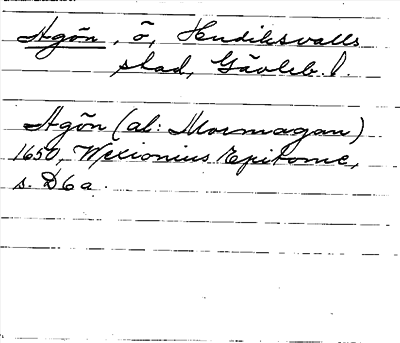 Agön, ö, Hudiksvalls
stad, Gävleb. l.
Agön (al: Mormagan)
1650, Wexionius Epitome,
s. D6a.